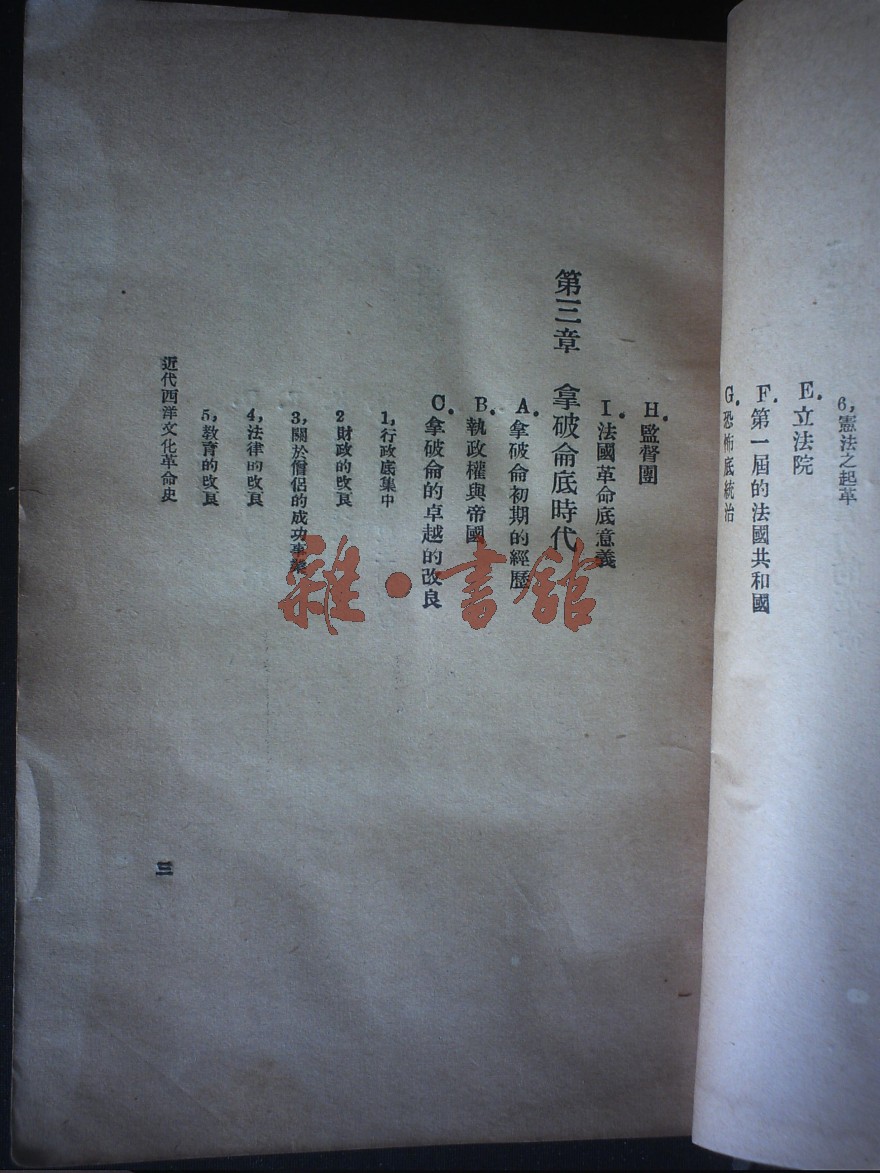 6,憲法之起革
E.立法院
F.第一屆的法國共和國
G.恐怖底統治
H.監督團
I.法國革命底意義
第三章 拿破侖底時代
A.拿破侖初期的經歷
B.執政權與帝國
C.拿破侖的卓越的改良
1,行政底集中
2財政的改良
3,關於僧侶的成功事業
4,法律的改良
5,教育的改良
近代西洋文化革命史
三
雜·書館